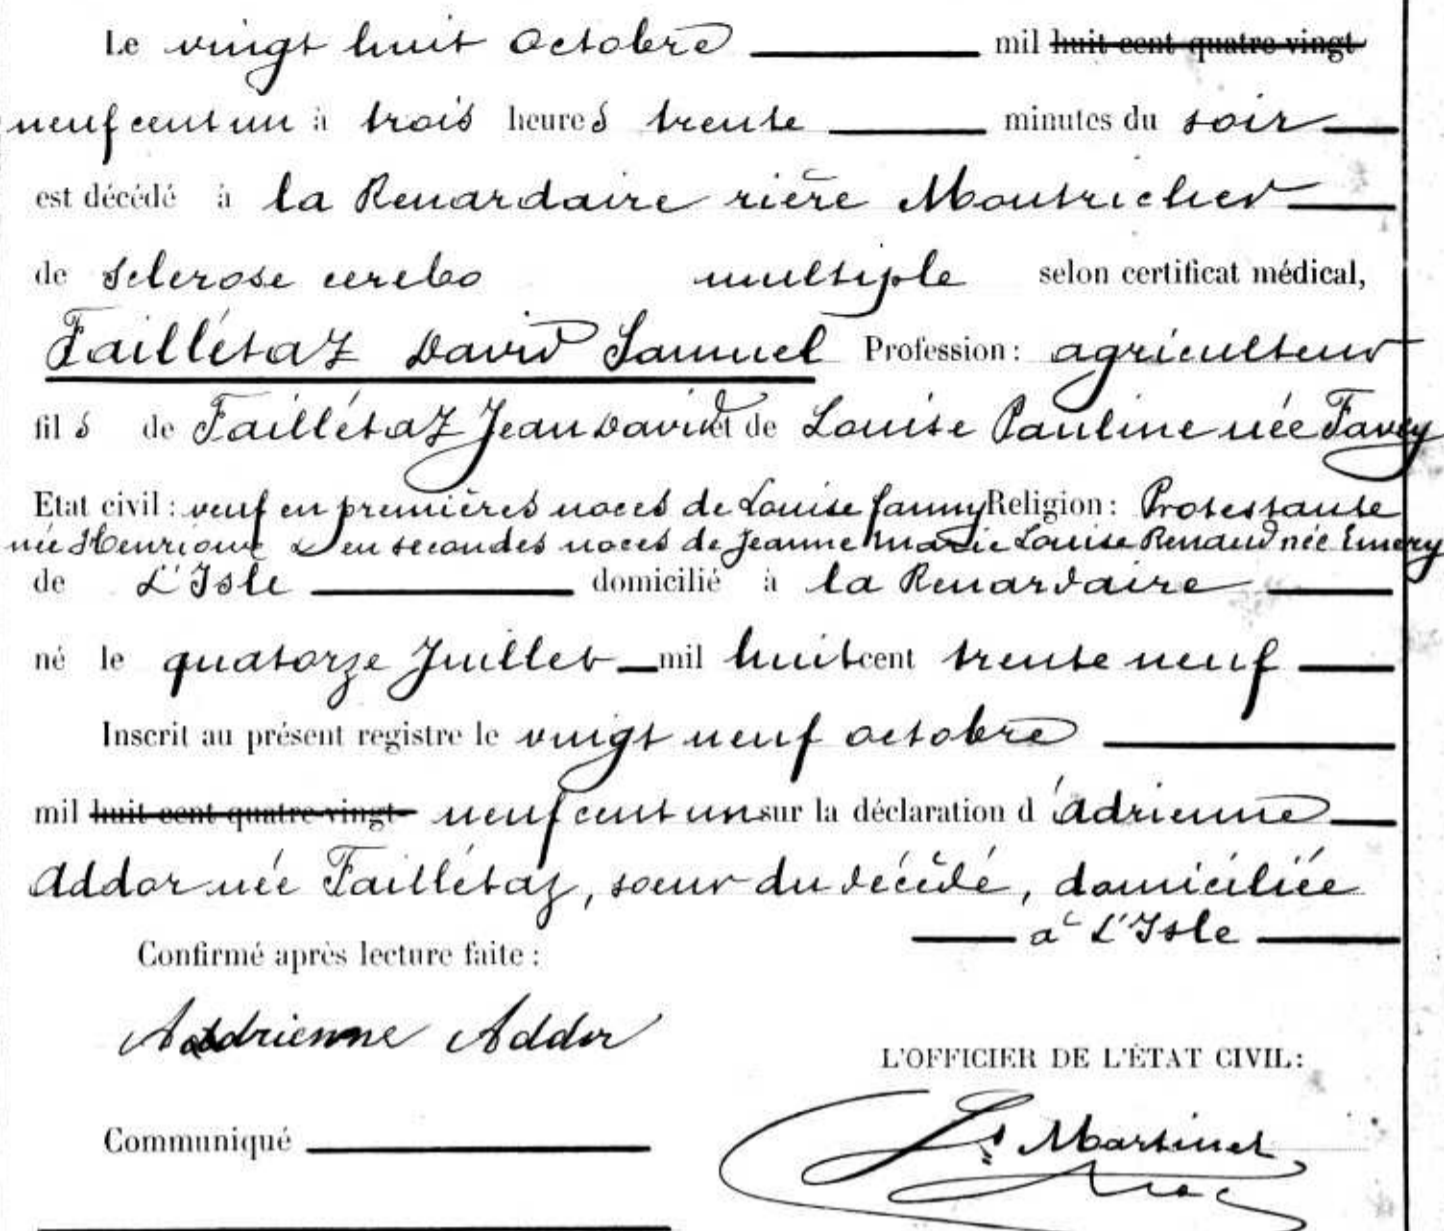 Le vingt huit Octobre mil huit cent quatre-vingt
neuf cent un à trois heures trente minutes du soir
est décédé à la Renardaire rière Montricher
de Sclerose cerebo multiple selon certificat médical,
Faillétaz David Samuel Profession: agriculteur
fils de Faillétaz Jean David et de Louise Pauline née Favey
Etat civil: veuf en premières noces de Louise fanny Religion: Protestante
née Henrioud & en secondes noces de Jeanne Marie Louise Renaud née Emery
de L'Isle domicilié à la Renardaire
né le quatorze Juillet mil huit cent trente neuf
Inscrit au présent registre le vingt neuf octobre
mil huit cent quatre-vingt- neuf cent un sur la déclaration d'adrienne
Addor née Faillétaz, soeur du décédé, domiciliée
à L'Isle
Confirmé après lecture faite:
Addrienne Addor
L'OFFICIER DE L'ÉTAT CIVIL:
Communiqué
Ls Martinet